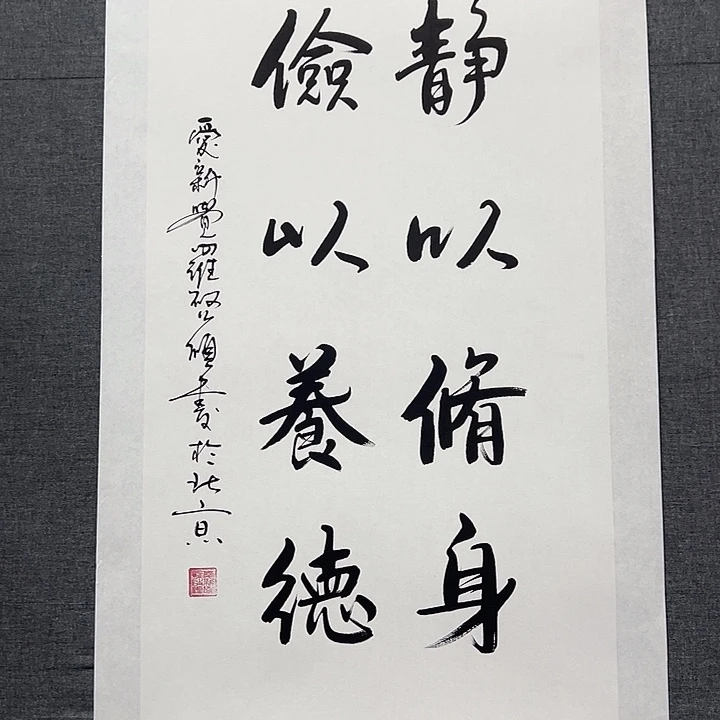 静以脩身
儉以養德
愛新覺羅啓碩書於北京